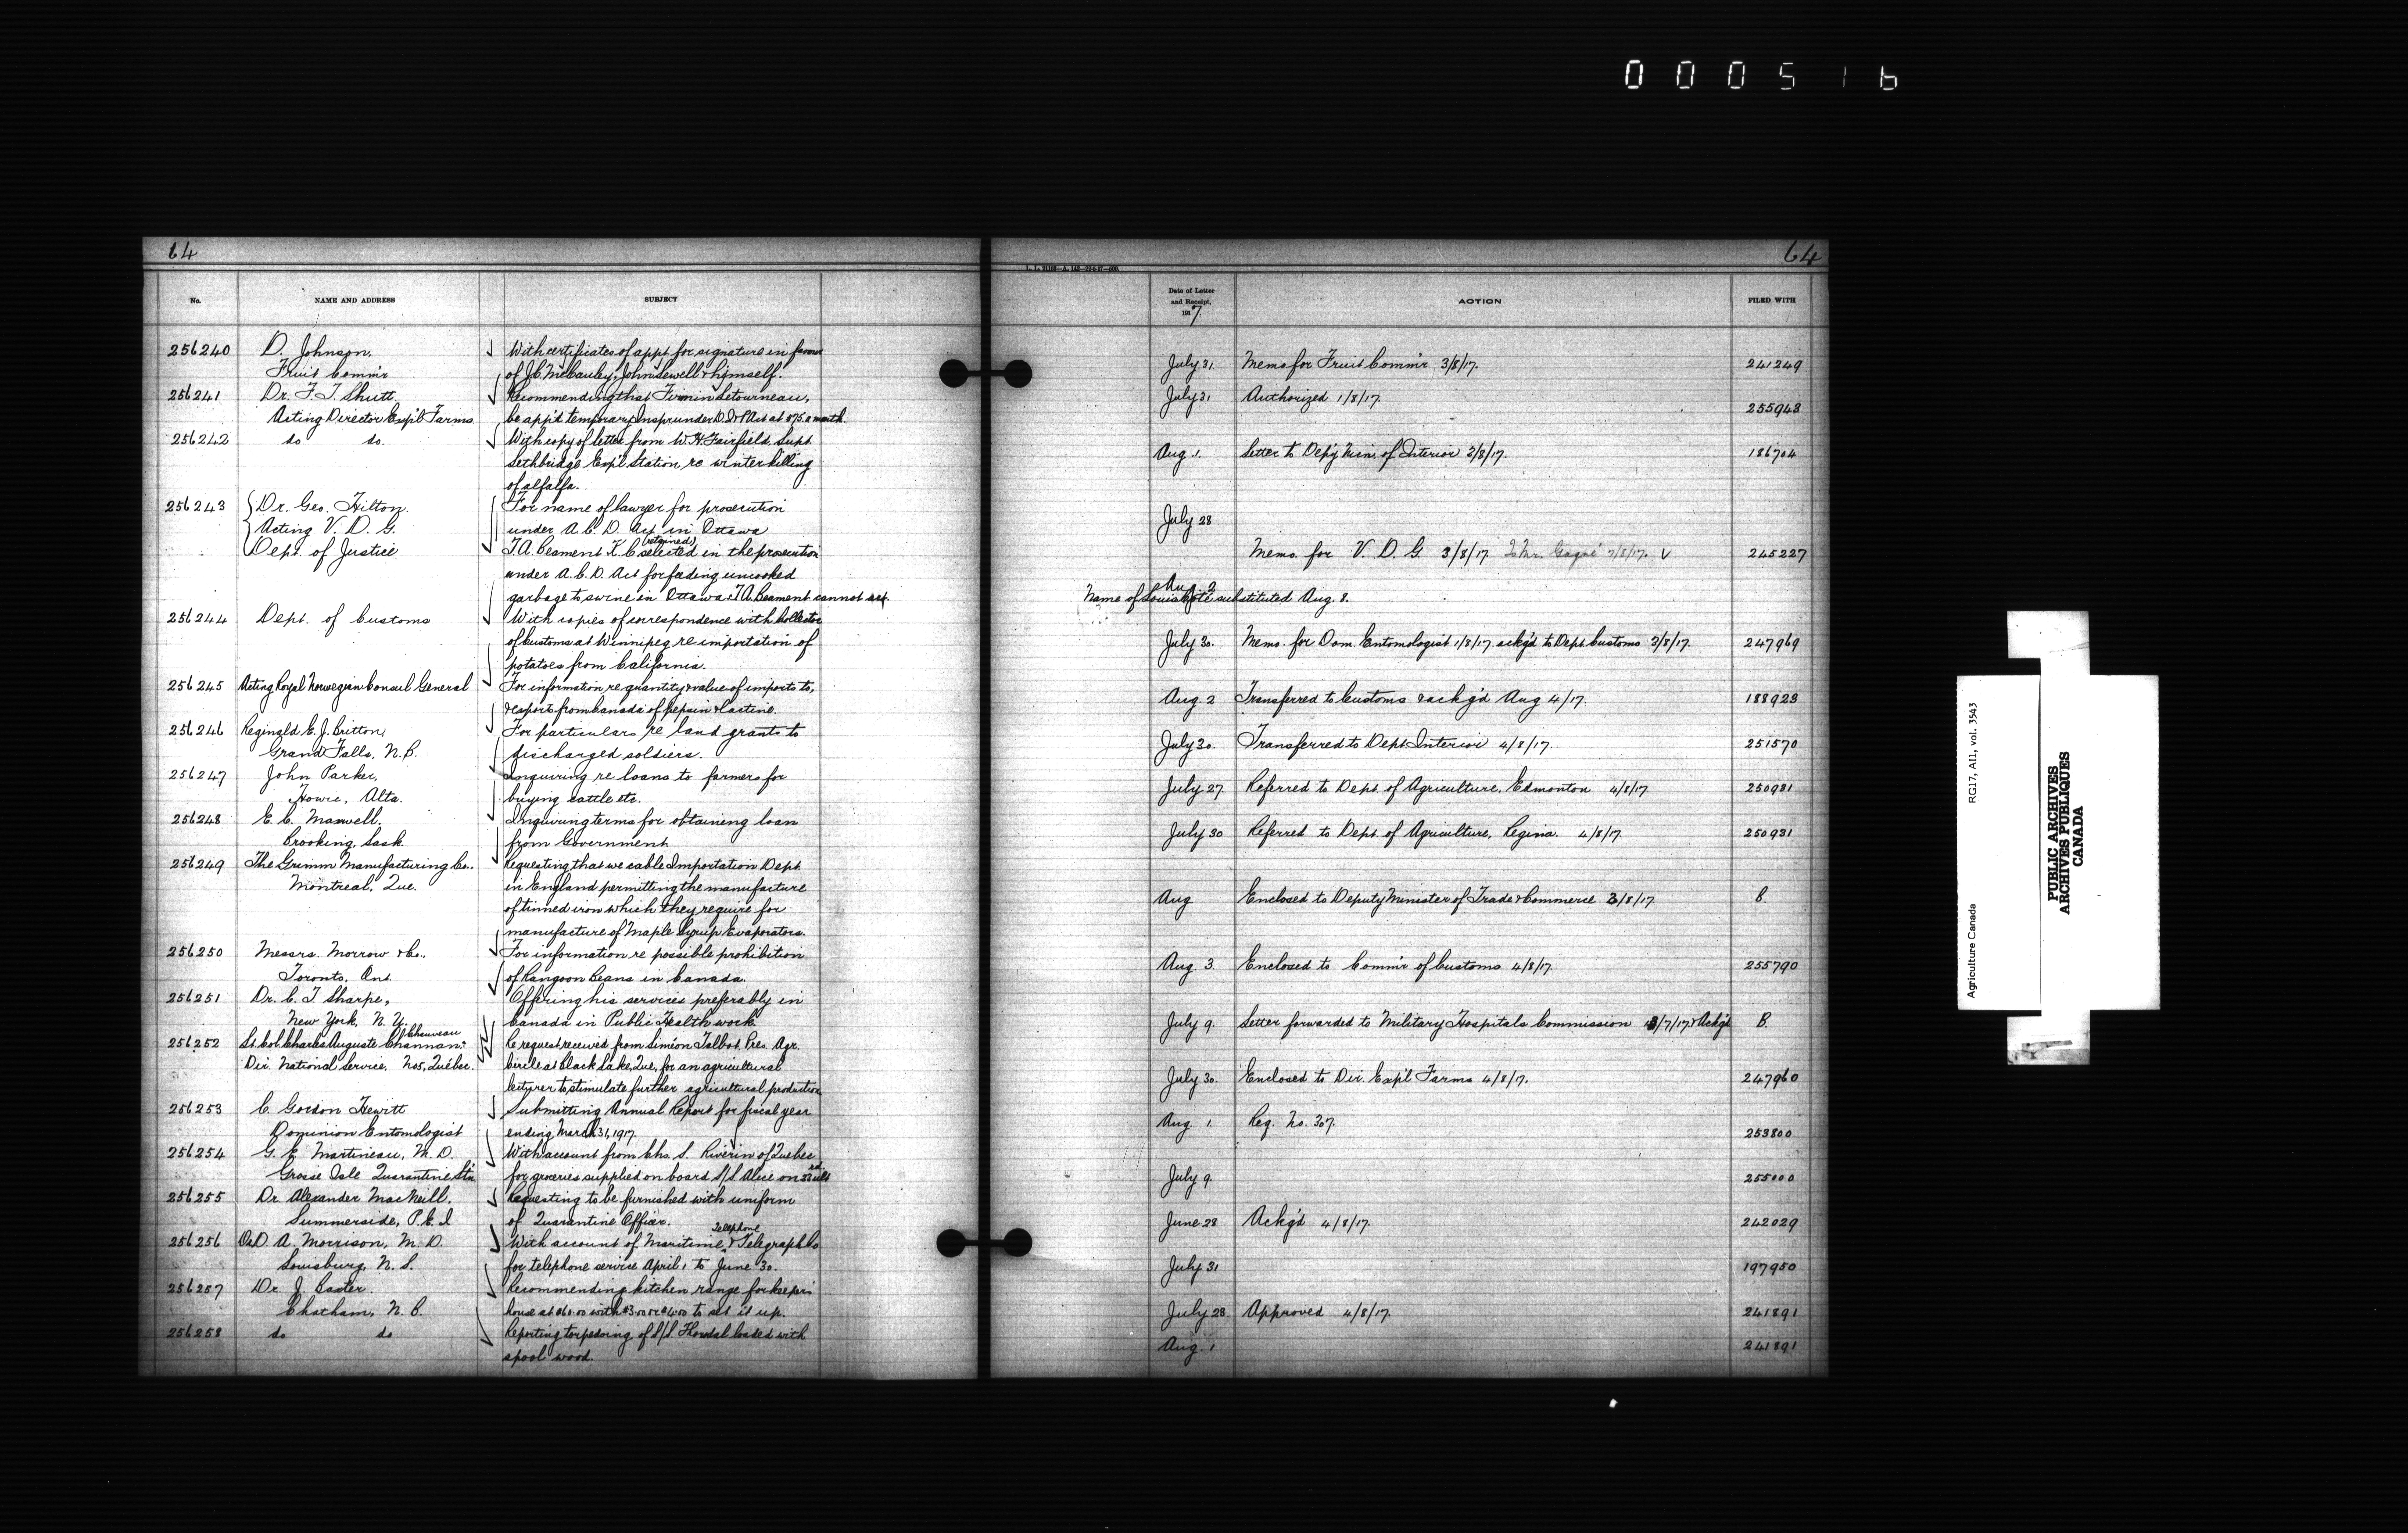 000516
64
64
L. L. 91163—A. 142—22-5-17—500.
No.
NAME AND ADDRESS
SUBJECT
Date of Letter and Receipt, 1917.
ACTION
FILED WITH
256240 D. Johnson, With certificates of appt for signature in favour
Fruit Comm'r of J.C. McCauley, John Sewell & himself. July 31. Memo for Fruit Comm'r 3/8/17. 241249
256241 Dr. F. T. Shutt, Recommending that Firmin Letourneau, July 31 Authorized 1/8/17.
Acting Director Exp'l Farms be app'd temporary Insp under D.I.&P. Act at $75. a month. 255948
256242 do do. With copy of letter from W. H. Fairfield, Supt
Lethbridge Exp'l Station re winter killing Aug. 1. Letter to Dep'y Min. of Interior 3/8/17. 186704
of alfalfa.
256243 Dr. Geo. Hilton. For name of lawyer for prosecution
Acting V. D. G. under A. C. D. Act in Ottawa July 28
Dept. of Justice T. A. Beament K. C. selected (retained) in the prosecution Memo. for V. D. G. 3/8/17 To Mr. Gagné 7/8/17. 245227
under A. C. D. Act for feeding uncooked
garbage to swine in Ottawa. T A Beament cannot act Aug 2 Name of Louis Coté substituted Aug. 8.
256244 Dept. of Customs With copies of correspondence with Collector
of Customs at Winnipeg re importation of July 30. Memo. for Dom. Entomologist 1/8/17 ackg'd to Dept Customs 3/8/17. 247969
potatoes from California.
256245 Acting Royal Norwegian Consul General For information re quantity & value of imports to,
& export from Canada of pepsin & lactine. Aug. 2 Transferred to Customs & ackg'd Aug 4/17. 188923
256246 Reginald E. J. Britton, For particulars re land grants to
Grand Falls, N.B. discharged soldiers. July 30. Transferred to Dept Interior 4/8/17. 251570
256247 John Parker, Inquiring re loans to farmers for
Howie, Alta. buying cattle etc. July 27. Referred to Dept. of Agriculture, Edmonton 4/8/17. 250931
256248 E. C. Maxwell, Inquiring terms for obtaining loan
Brooking, Sask. from Government July 30 Referred to Dept. of Agriculture, Regina. 4/8/17. 250931
256249 The Grimm Manufacturing Co., Requesting that we cable Importation Dept
Montreal, Que. in England permitting the manufacture
of tinned iron which they require for Aug Enclosed to Deputy Minister of Trade & Commerce 3/8/17 B.
manufacture of Maple Syrup Evaporators.
256250 Messrs. Morrow & Co., For information re possible prohibition
Toronto, Ont. of Rangoon Beans in Canada. Aug. 3. Enclosed to Comm'r of Customs 4/8/17. 255790
256251 Dr. C. T. Sharpe, Offering his services preferably in
New York, N. Y. Canada in Public Health work. July 9. Letter forwarded to Military Hospitals Commission /7/17 & Ackg'd B.
256252 Lt. Col. Charles Auguste Chauveau Re request received from Siméon Talbot, Pres. Agr.
Dir. National Service, No5, Québec. Circle at Black Lake, Que, for an agricultural
lecturer to stimulate further agricultural production July 30. Enclosed to Dir. Exp'l Farms 4/8/17. 247960
256253 C. Gordon Hewitt Submitting Annual Report for fiscal year
Dominion Entomologist ending March 31, 1917. Aug. 1. Req. No. 307. 253800
256254 G. E. Martineau, M. D. With account from Chs. S. Riverin of Quebec
Grosse Isle Quarantine Stn. for groceries supplied on board S/S Alice on ult July 9. 255000
256255 Dr. Alexander MacNeill, Requesting to be furnished with uniform
Summerside, P. E. I of Quarantine Officer. June 28 Ackg'd 4/8/17. 242029
256256 D. A. Morrison, M. D. With account of Maritime Telephone & Telegraph Co
Louisburg, N. S. for telephone service April 1 to June 30. July 31 197950
256257 Dr. J. Baxter. Recommending kitchen range for keeper's
Chatham, N. B. house at with to set it up. July 28 Approved 4/8/17. 241891
256258 do do Reporting torpedoing of S/S loaded with
spool wood. Aug. 1 241891
Agriculture Canada RG17, AI1, vol. 3543
PUBLIC ARCHIVES
ARCHIVES PUBLIQUES
CANADA